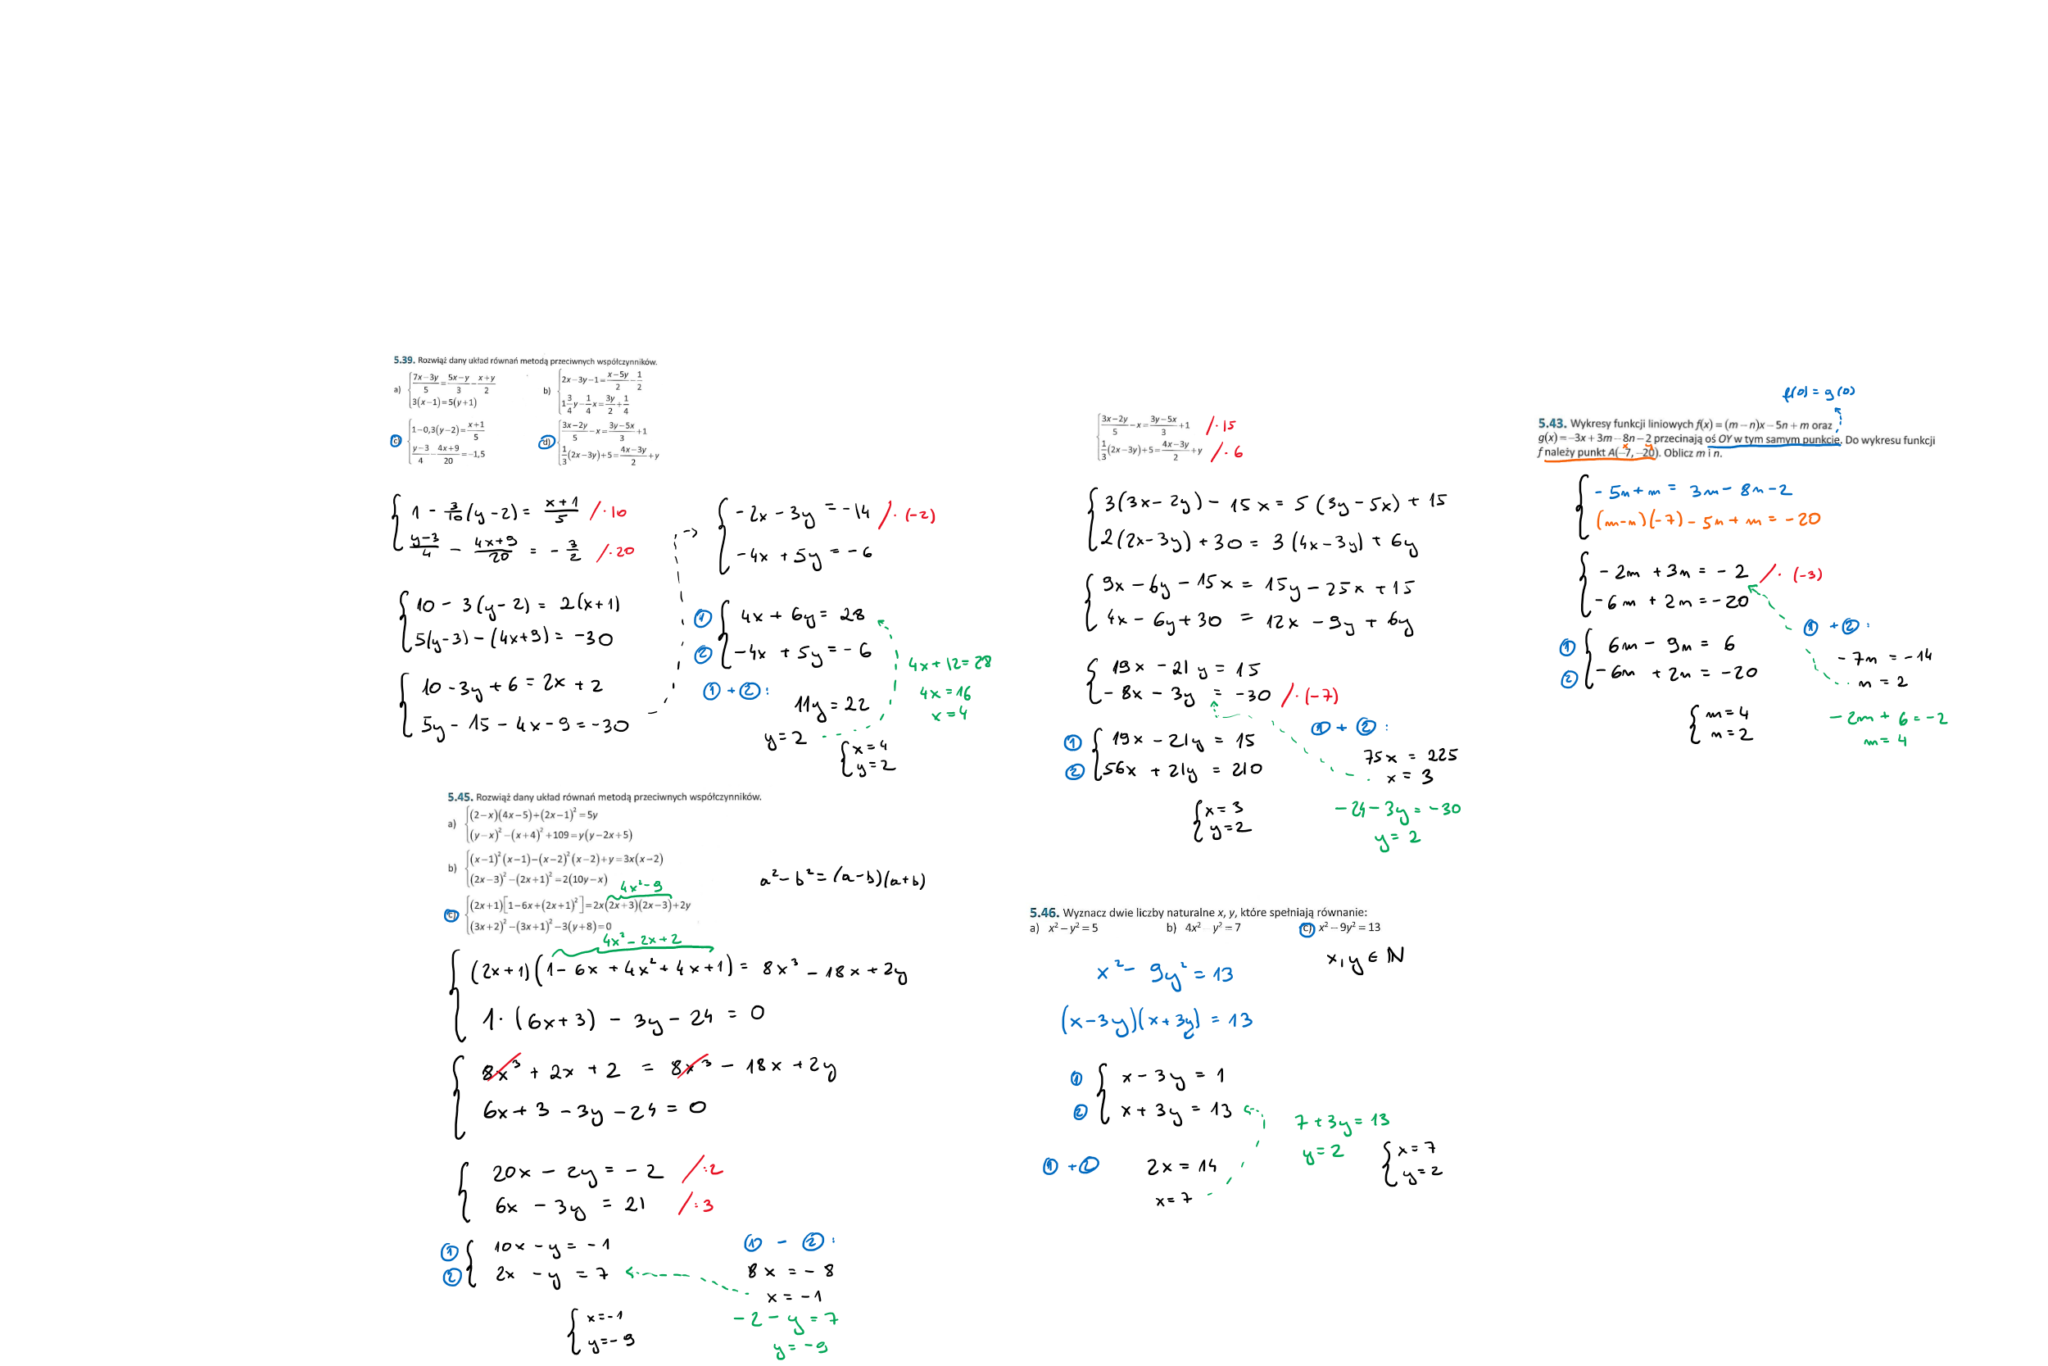 5.39. Rozwiąż dany układ równań metodą przeciwnych współczynników.
a) { (7x−3y)/5 = (5x−y)/3 − (x+y)/2
3(x−1)=5(y+1)
b) { 2x−3y−1 = (x−5y)/2 − 1/2
1 3/4 y − 1/4 x = 3y/2 + 1/4
c) { 1−0,3(y−2) = (x+1)/5
(y−3)/4 − (4x+9)/20 = −1,5
d) { (3x−2y)/5 − x = (3y−5x)/3 + 1
1/3 (2x−3y)+5 = (4x−3y)/2 + y
{ 1 − 3/10 (y−2) = (x+1)/5 /·10
(y−3)/4 − (4x+9)/20 = −3/2 /·20
{ 10 − 3(y−2) = 2(x+1)
5(y−3) − (4x+9) = −30
{ 10 − 3y + 6 = 2x + 2
5y − 15 − 4x − 9 = −30
{ −2x − 3y = −14 /·(−2)
−4x + 5y = −6
① { 4x + 6y = 28
② −4x + 5y = −6
① + ②:
11y = 22
y = 2
4x + 12 = 28
4x = 16
x = 4
{ x = 4
y = 2
{ (3x−2y)/5 − x = (3y−5x)/3 + 1 /·15
1/3 (2x−3y)+5 = (4x−3y)/2 + y /·6
{ 3(3x−2y) − 15x = 5(3y−5x) + 15
2(2x−3y) + 30 = 3(4x−3y) + 6y
{ 9x − 6y − 15x = 15y − 25x + 15
4x − 6y + 30 = 12x − 9y + 6y
{ 19x − 21y = 15
−8x − 3y = −30 /·(−7)
① { 19x − 21y = 15
② 56x + 21y = 210
① + ②:
75x = 225
x = 3
−24 − 3y = −30
y = 2
{ x = 3
y = 2
f(0) = g(0)
5.43. Wykresy funkcji liniowych f(x) = (m − n)x − 5n + m oraz
g(x) = −3x + 3m − 8n − 2 przecinają oś OY w tym samym punkcie. Do wykresu funkcji
f należy punkt A(−7, −20). Oblicz m i n.
x y
{ −5n + m = 3m − 8n − 2
(m−n)(−7) − 5n + m = −20
{ −2m + 3n = −2 /·(−3)
−6m + 2n = −20
① { 6m − 9n = 6
② −6m + 2n = −20
① + ②:
−7n = −14
n = 2
−2m + 6 = −2
m = 4
{ m = 4
n = 2
5.45. Rozwiąż dany układ równań metodą przeciwnych współczynników.
a) { (2−x)(4x−5)+(2x−1)² = 5y
(y−x)² − (x+4)² + 109 = y(y−2x+5)
b) { (x−1)²(x−1)−(x−2)²(x−2)+y = 3x(x−2)
(2x−3)² − (2x+1)² = 2(10y−x)
4x² − 9
c) { (2x+1)[1−6x+(2x+1)²] = 2x(2x+3)(2x−3)+2y
(3x+2)² − (3x+1)² − 3(y+8) = 0
a² − b² = (a−b)(a+b)
4x² − 2x + 2
{ (2x+1)(1 − 6x + 4x² + 4x + 1) = 8x³ − 18x + 2y
1·(6x+3) − 3y − 24 = 0
{ 8x³ + 2x + 2 = 8x³ − 18x + 2y
6x + 3 − 3y − 24 = 0
{ 20x − 2y = −2 /:2
6x − 3y = 21 /:3
① { 10x − y = −1
② 2x − y = 7
① − ②:
8x = −8
x = −1
−2 − y = 7
y = −9
{ x = −1
y = −9
5.46. Wyznacz dwie liczby naturalne x, y, które spełniają równanie:
a) x² − y² = 5 b) 4x² − y² = 7 c) x² − 9y² = 13
x² − 9y² = 13
x, y ∈ ℕ
(x−3y)(x+3y) = 13
① { x − 3y = 1
② x + 3y = 13
① + ②
2x = 14
x = 7
7 + 3y = 13
y = 2
{ x = 7
y = 2